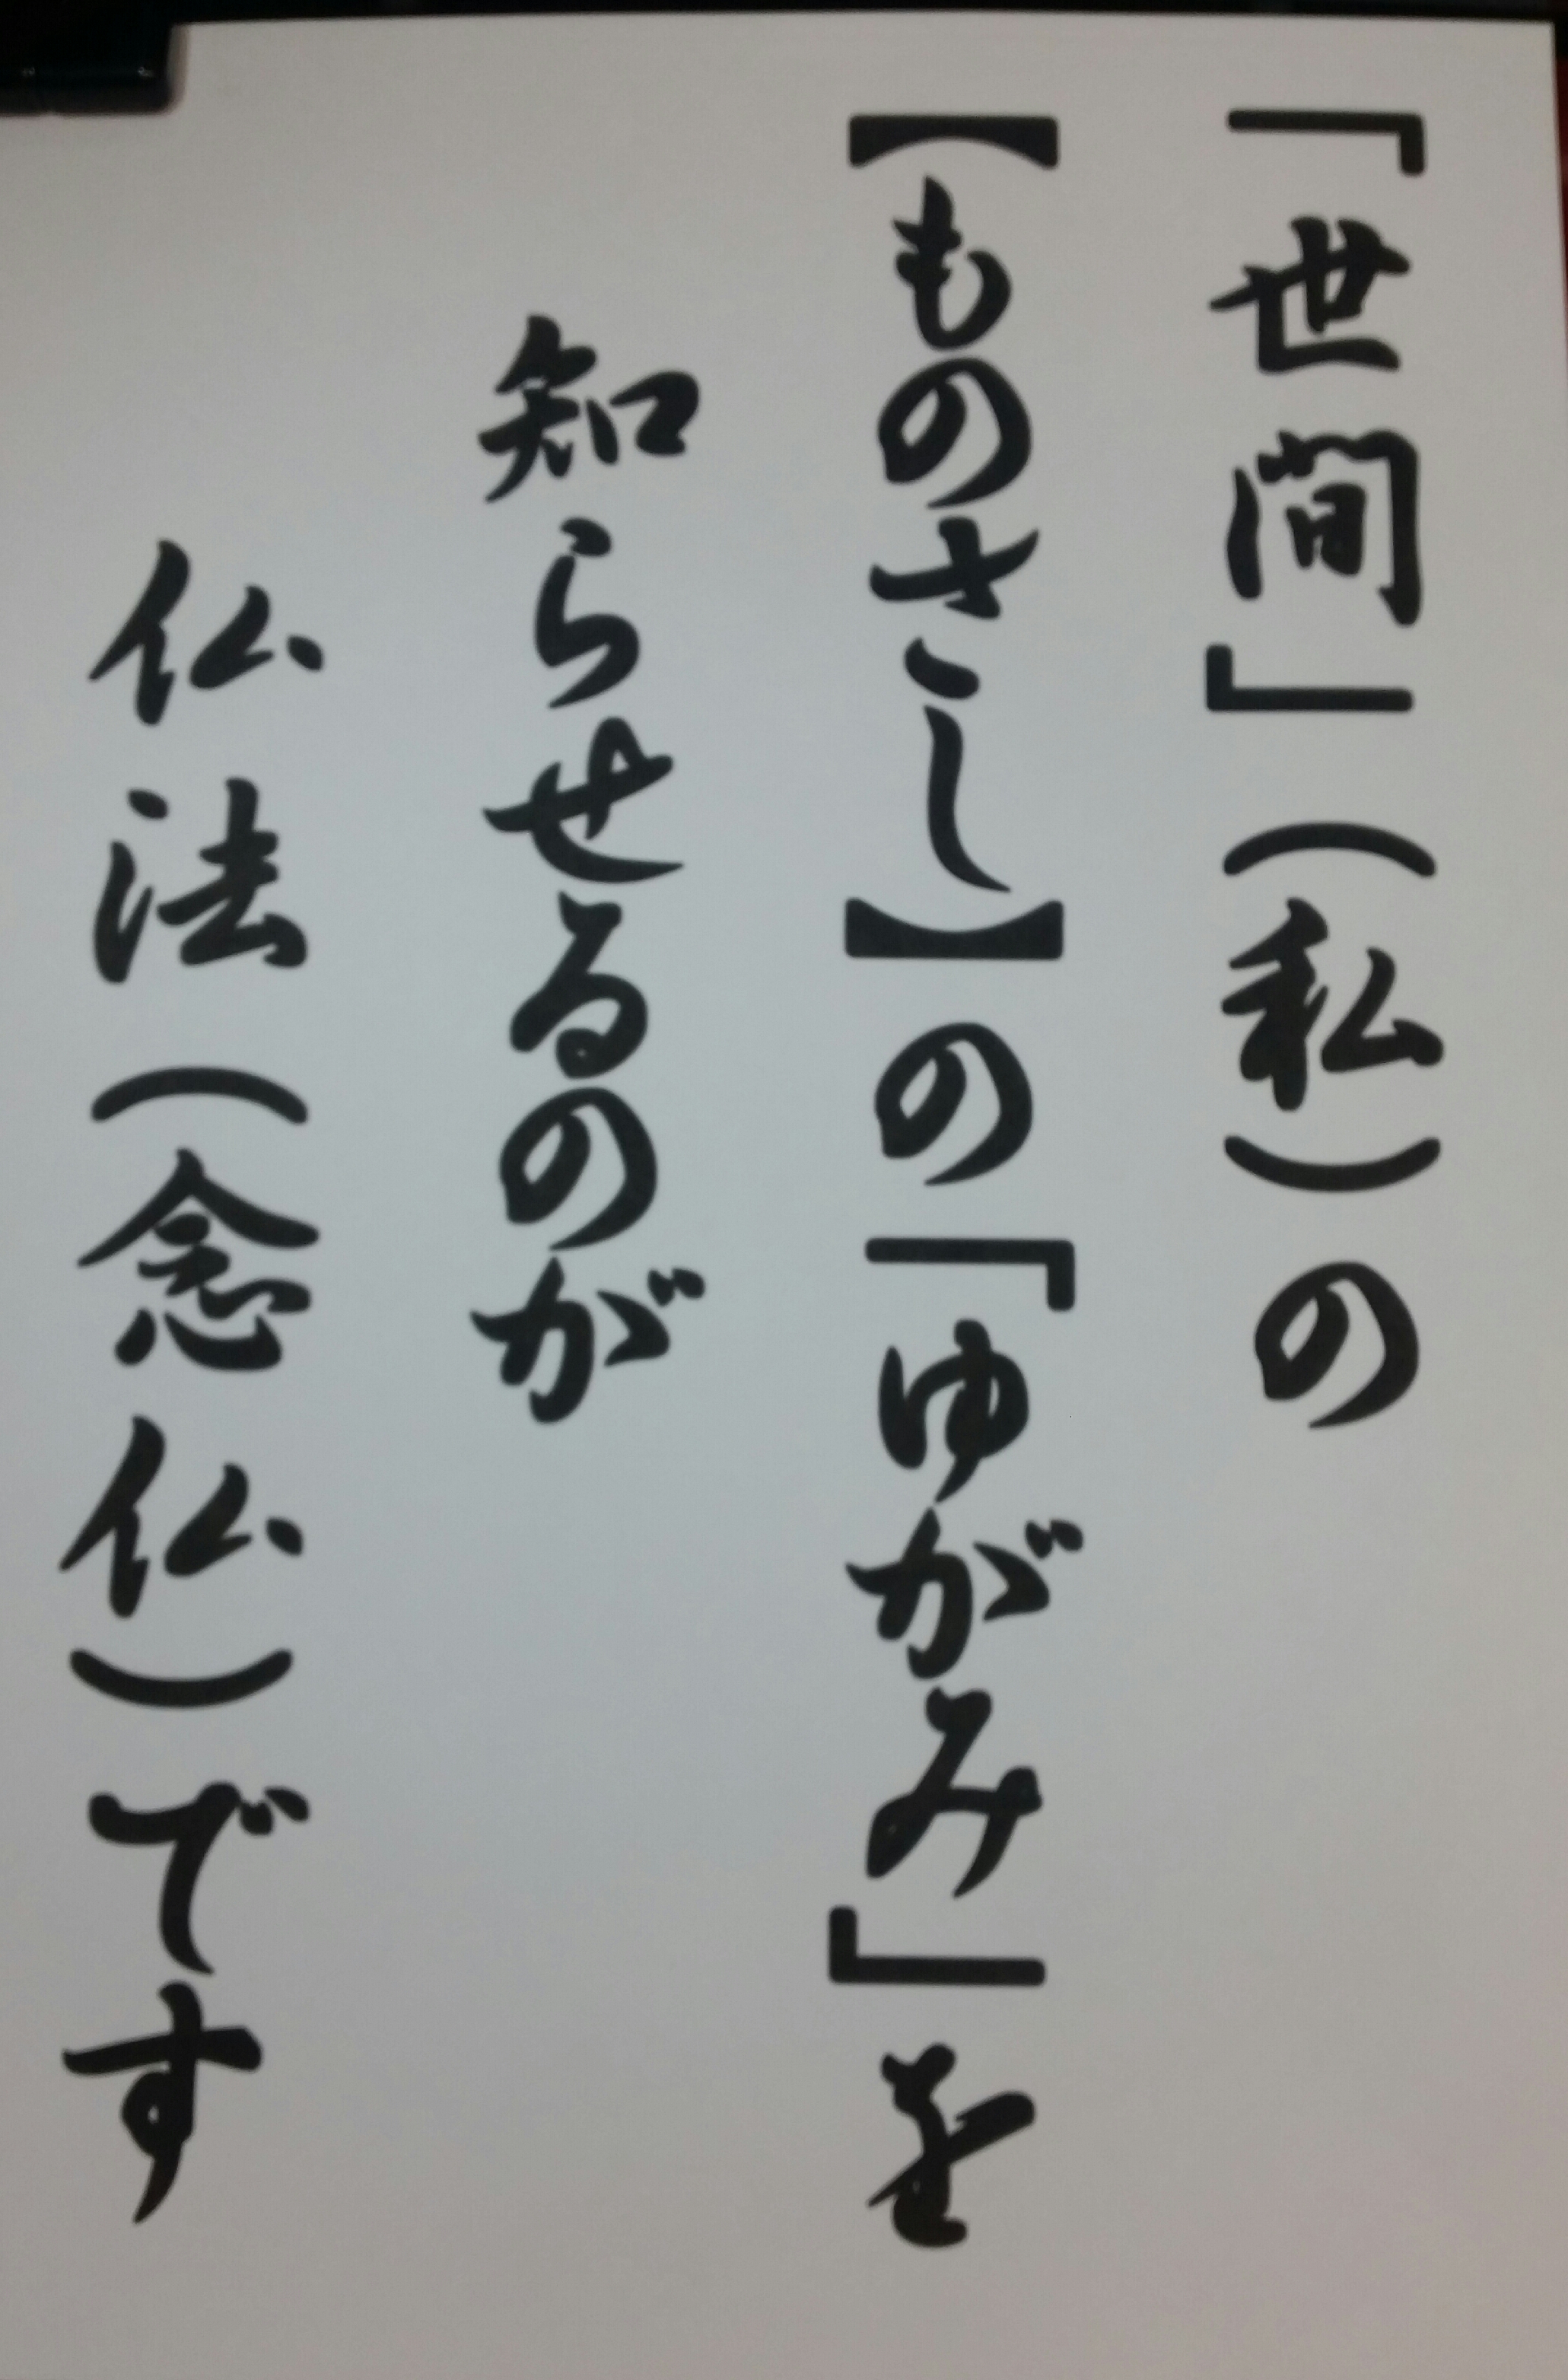 「世間」(私)の
【ものさし】の「ゆがみ」を
知らせるのが
仏法(念仏)です